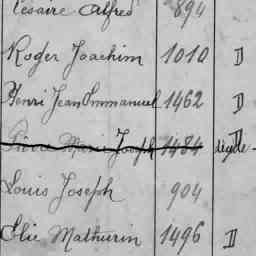 Césaire Alfred 894
Roger Joachim 1010 D
Henri Jean Emmanuel 1462 D
Pierre Marie Joseph 1484 D
Louis Joseph 904
Elie Mathurin 1496 D